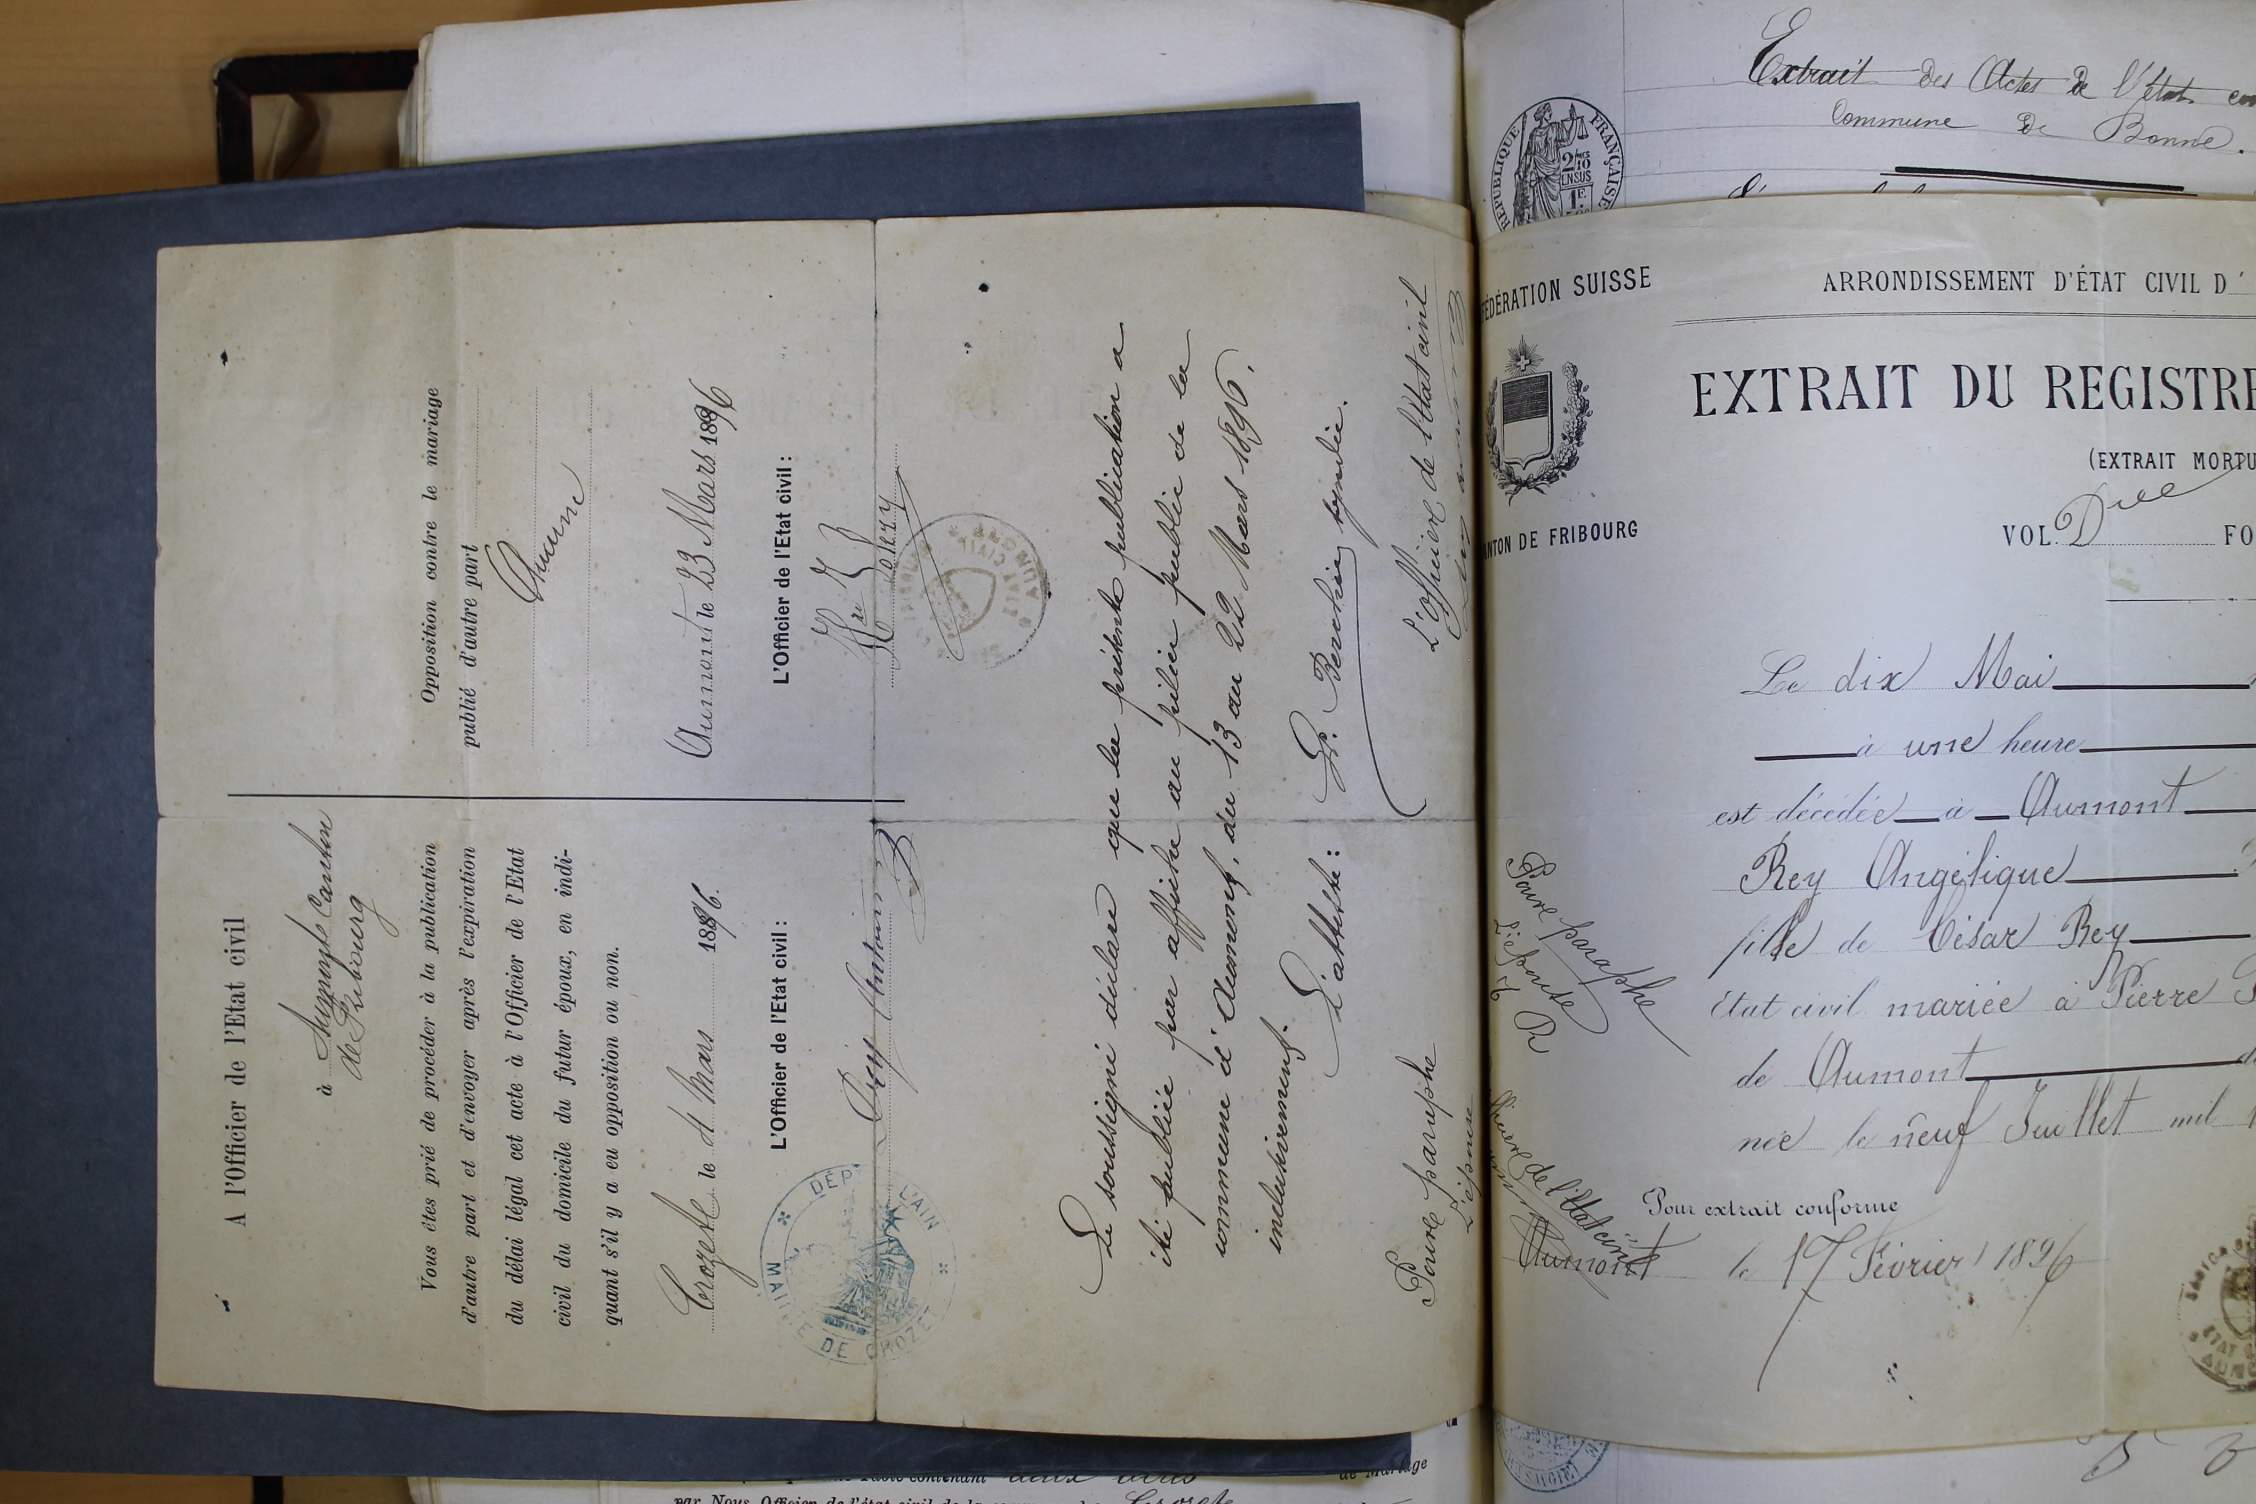 A l'Officier de l'Etat civil
à Aumont Canton
de Fribourg
Vous êtes prié de procéder à la publication
d'autre part et d'envoyer après l'expiration
du délai légal cet acte à l'Officier de l'Etat
civil du domicile du futur époux, en indi-
quant s'il y a eu opposition ou non.
Crozet le 11 Mars 1896.
L'Officier de l'Etat civil :
MAIRIE DE CROZET
DÉP L'AIN
Opposition contre le mariage
publié d'autre part
Aucune
Aumont le 23 Mars 1896
L'Officier de l'Etat civil :
Volery
Le soussigné déclare que la présente publication a
été publiée par affiche au pilier public de la
commune d'Aumont, du 13 au 22 Mars 1896.
inclusivement.
L'atteste :
syndic.
Pour paraphe
L'épouse
L'officier de l'Etat civil
Extrait des Actes de l'état
Commune de Bonne.
RÉPUBLIQUE FRANÇAISE
FÉDÉRATION SUISSE
ARRONDISSEMENT D'ÉTAT CIVIL D'
EXTRAIT DU REGISTRE
(EXTRAIT MORTU
NTON DE FRIBOURG
VOL. D FO
Le dix Mai
à une heure
est décédée à Aumont
Rey Angélique
fille de César Rey
Etat civil mariée à Pierre
de Aumont
née le neuf Juillet mil
Pour extrait conforme
Aumont le 17 Février 1896
Pour paraphe
L'épouse
de l'Etat civil
de Mariage